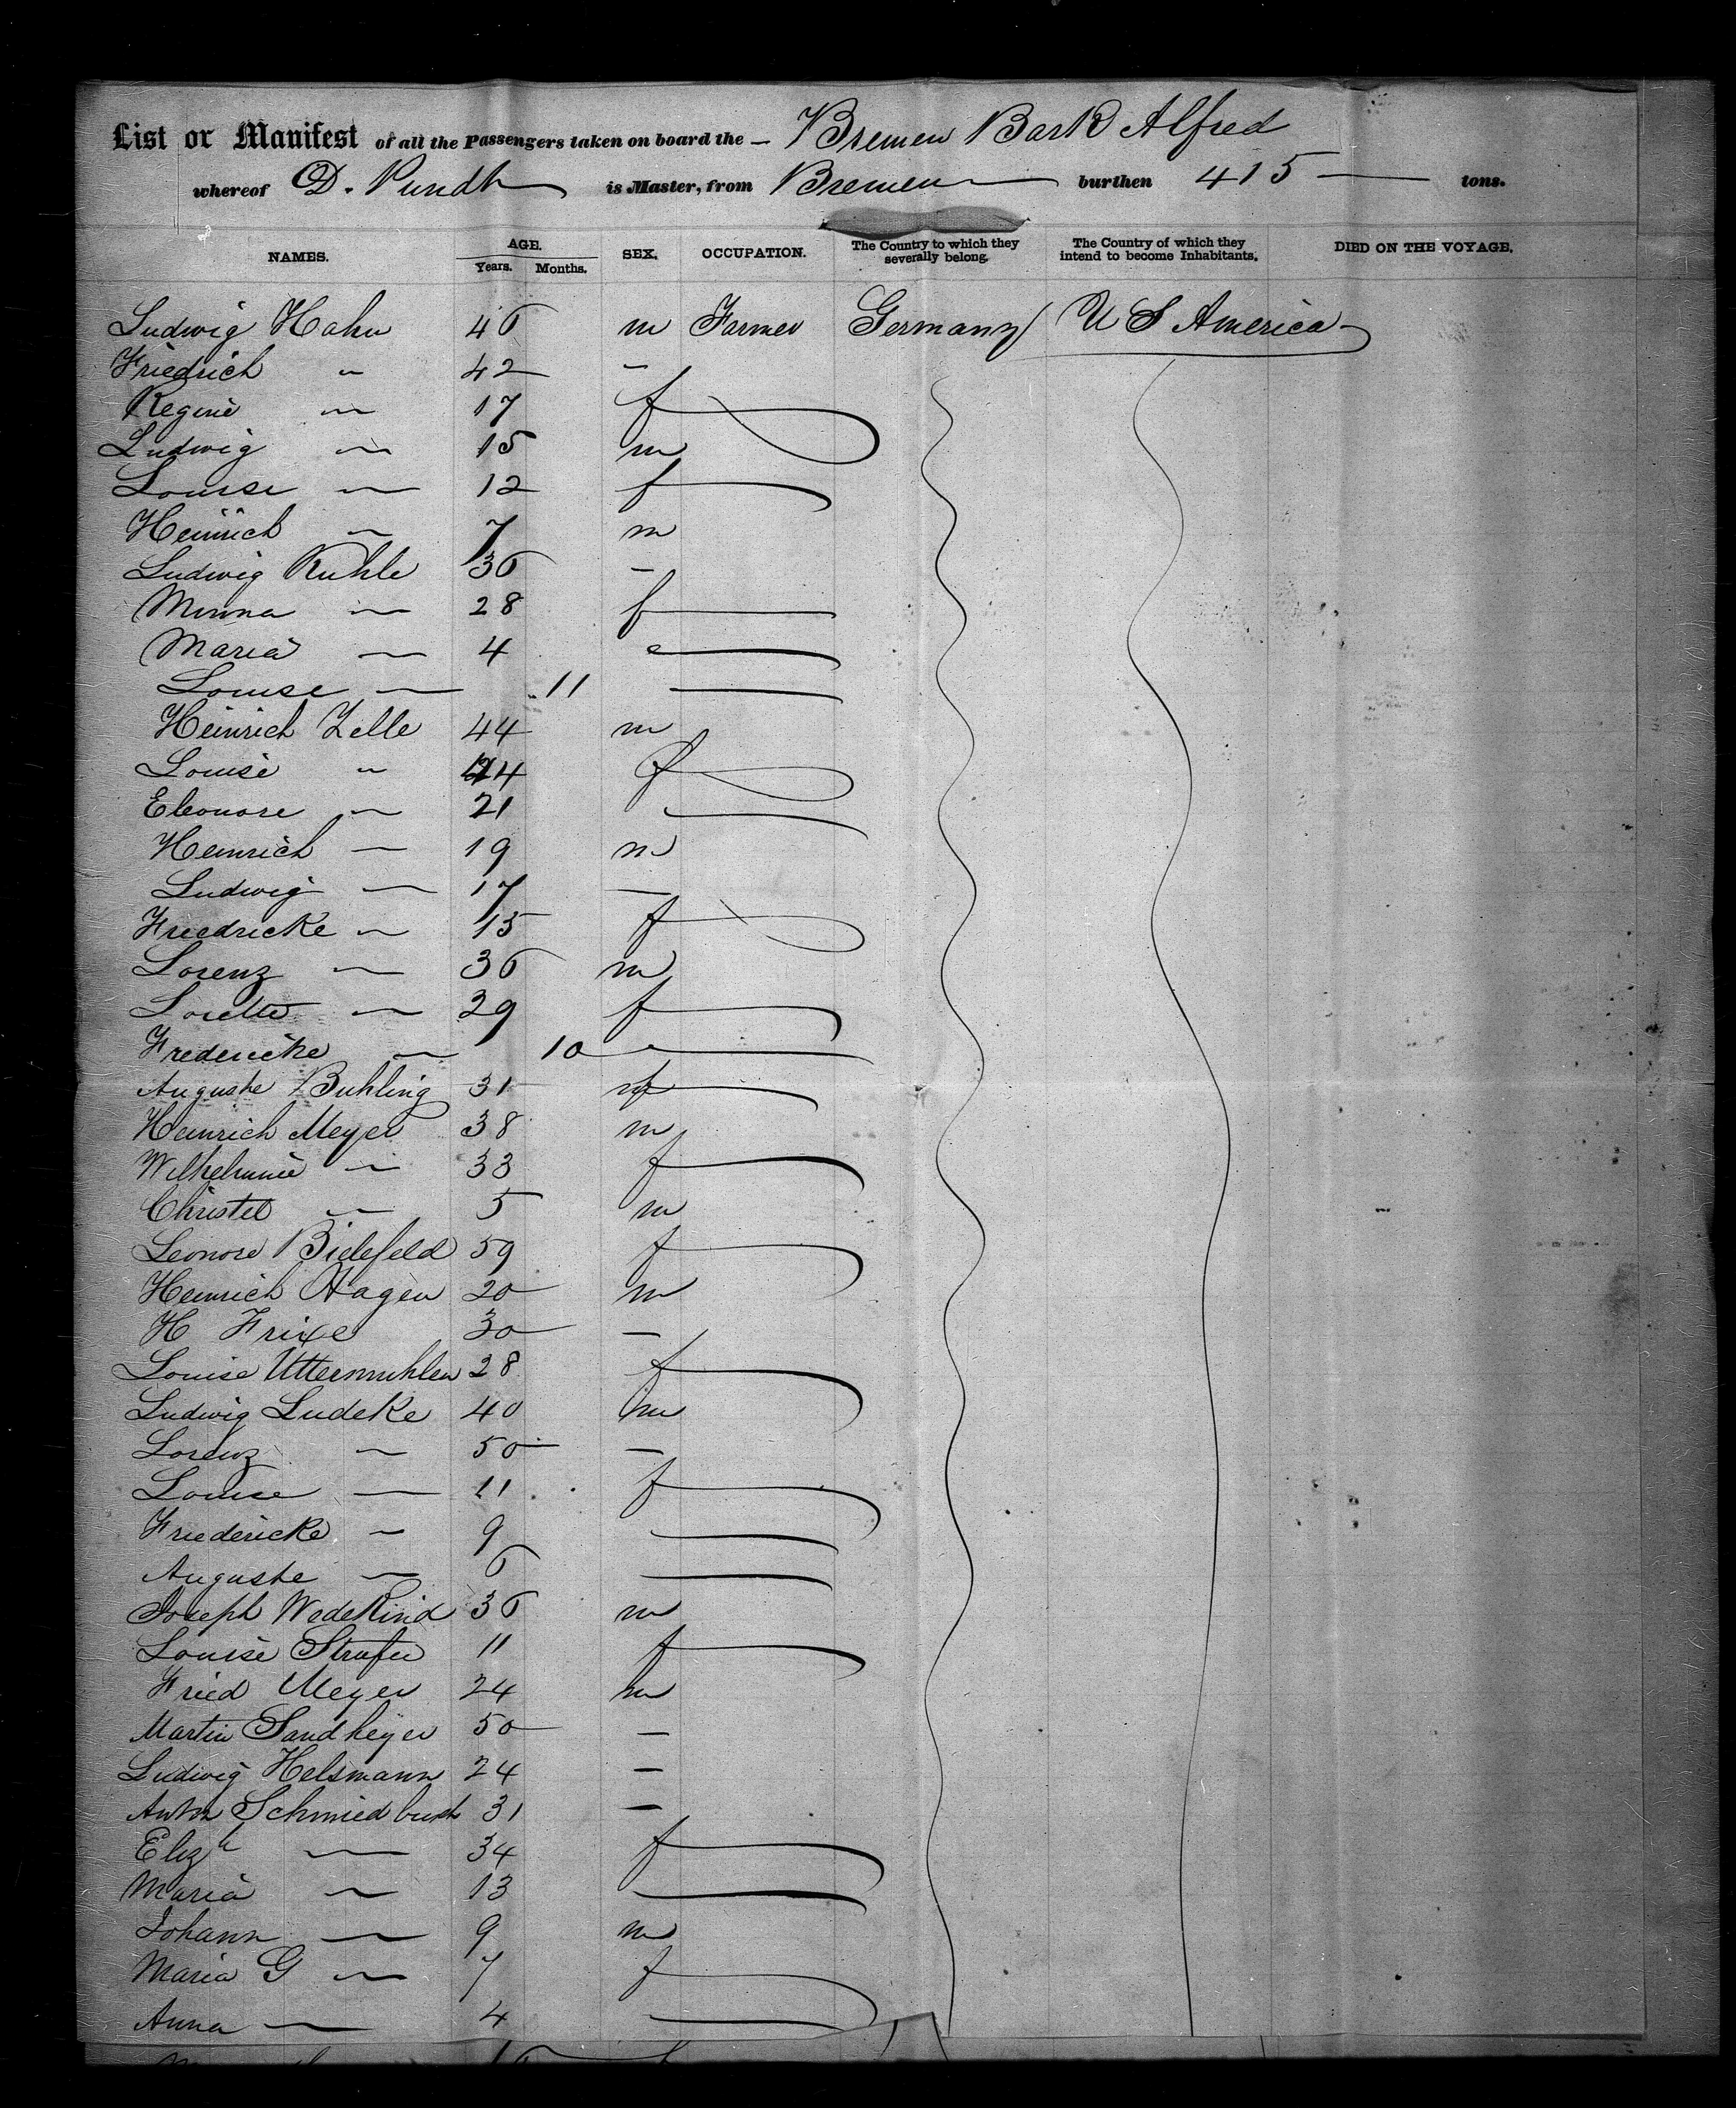 List or Manifest of all the Passengers taken on board the — Bremen Bark Alfred
whereof D. Pundt is Master, from Bremen burthen 415 — tons.
NAMES. AGE. Years. Months. SEX. OCCUPATION. The Country to which they severally belong. The Country of which they intend to become Inhabitants. DIED ON THE VOYAGE.
Ludwig Hahn 46 m Farmer Germany U S America
Friedrich " 42 –
Regine — 17 f
Ludwig — 15 m
Louise — 12 f
Heinrich — 7 m
Ludwig Kuhle 36 –
Minna — 28 f
Maria — 4
Louise — 11
Heinrich Zelle 44 m
Louise " 44 f
Eleonore — 21
Heinrich — 19 m
Ludwig — 17 —
Friedricke — 15 f
Lorenz — 36 m
Lorette — 29 f
Fredericke — 10
Auguste Buhling 31 f
Heinrich Meyer 38 m
Wilhelmine — 33 f
Christel — 5 m
Leonore Bielefeld 59 f
Heinrich Hagen 20 m
H Frixe 30 —
Louise Uttermuhlen 28 f
Ludwig Ludeke 40 m
Lorenz — 50 —
Louise — 11 f
Friedericke — 9
Auguste — 6
Joseph Wedekind 36 m
Louise 11 f
Fried Meyer 24 m
Martin Sandheger 50 —
Ludwig Helsmann 24 —
Anton Schmiedbush 31 —
Elizth — 34 f
Maria — 13
Johann — 9 m
Maria G — 7 f
Anna — 4